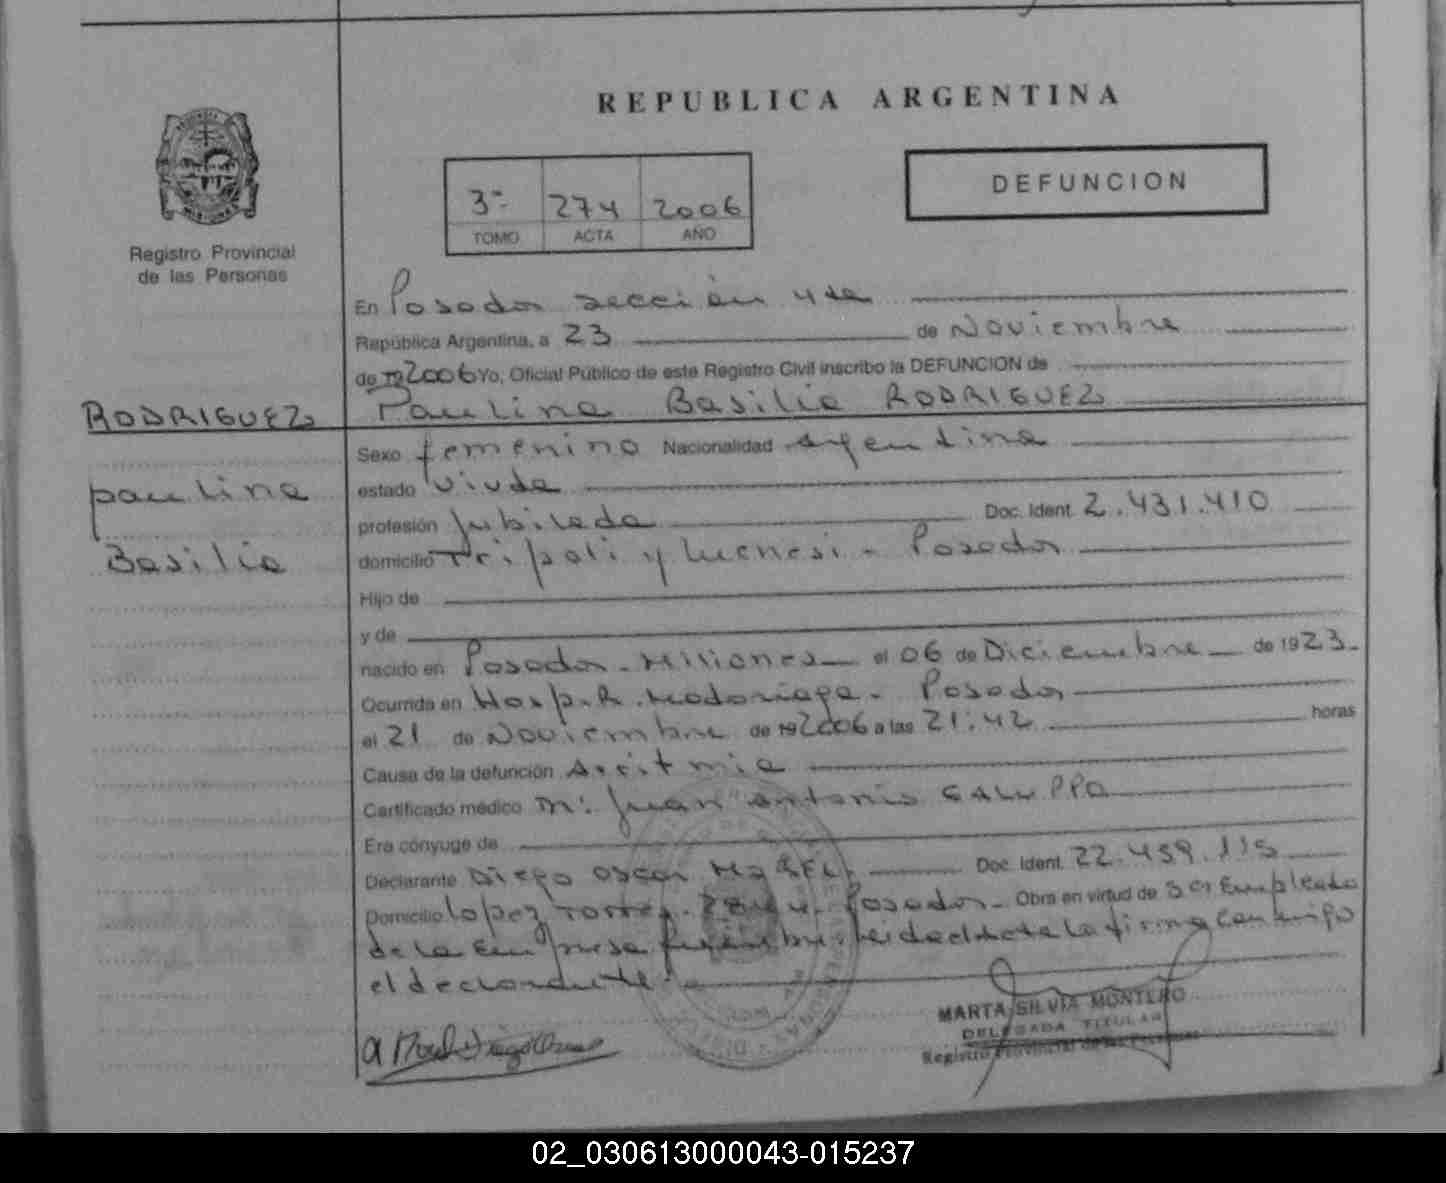 REPUBLICA ARGENTINA
DEFUNCION
3º 274 2006
TOMO ACTA AÑO
Registro Provincial
de las Personas
En Posadas sección 4ta
República Argentina, a 23 de Noviembre
de 19 2006 Yo, Oficial Público de este Registro Civil inscribo la DEFUNCION de
Paulina Basilia RODRIGUEZ
RODRIGUEZ
Paulina
Basilia
Sexo femenino Nacionalidad argentina
estado viuda
profesión Jubilada Doc. Ident. 2.431.410
domicilio Tripoli y - Posadas
Hijo de
y de
nacido en Posadas - Misiones - el 06 de Diciembre - de 1923.
Ocurrida en Hosp. R. Madariaga - Posadas
el 21 de Noviembre de 19 2006 a las 21:42 horas
Causa de la defunción Arritmia
Certificado médico Juan Antonio GALUPPO
Era cónyuge de
Declarante Diego Oscar Doc. Ident. 22.459.115
Domicilio Lopez Torres - Posadas - Obra en virtud de ser Empleado
de la Empresa la firma conmigo
el declarante
MARTA SILVIA MONTERO
DELEGADA TITULAR
Registro Provincial de las Personas
02_030613000043-015237